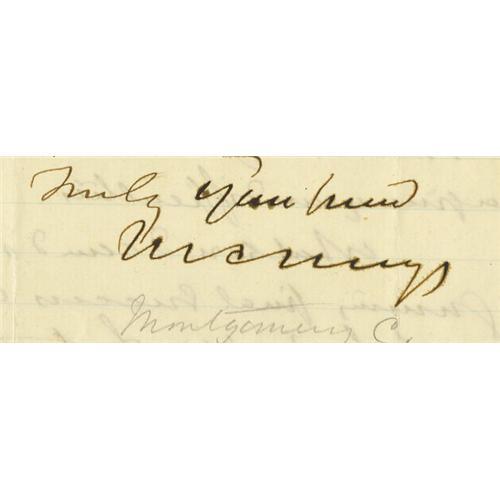 Truly Your friend
M C Meigs
Montgomery C.